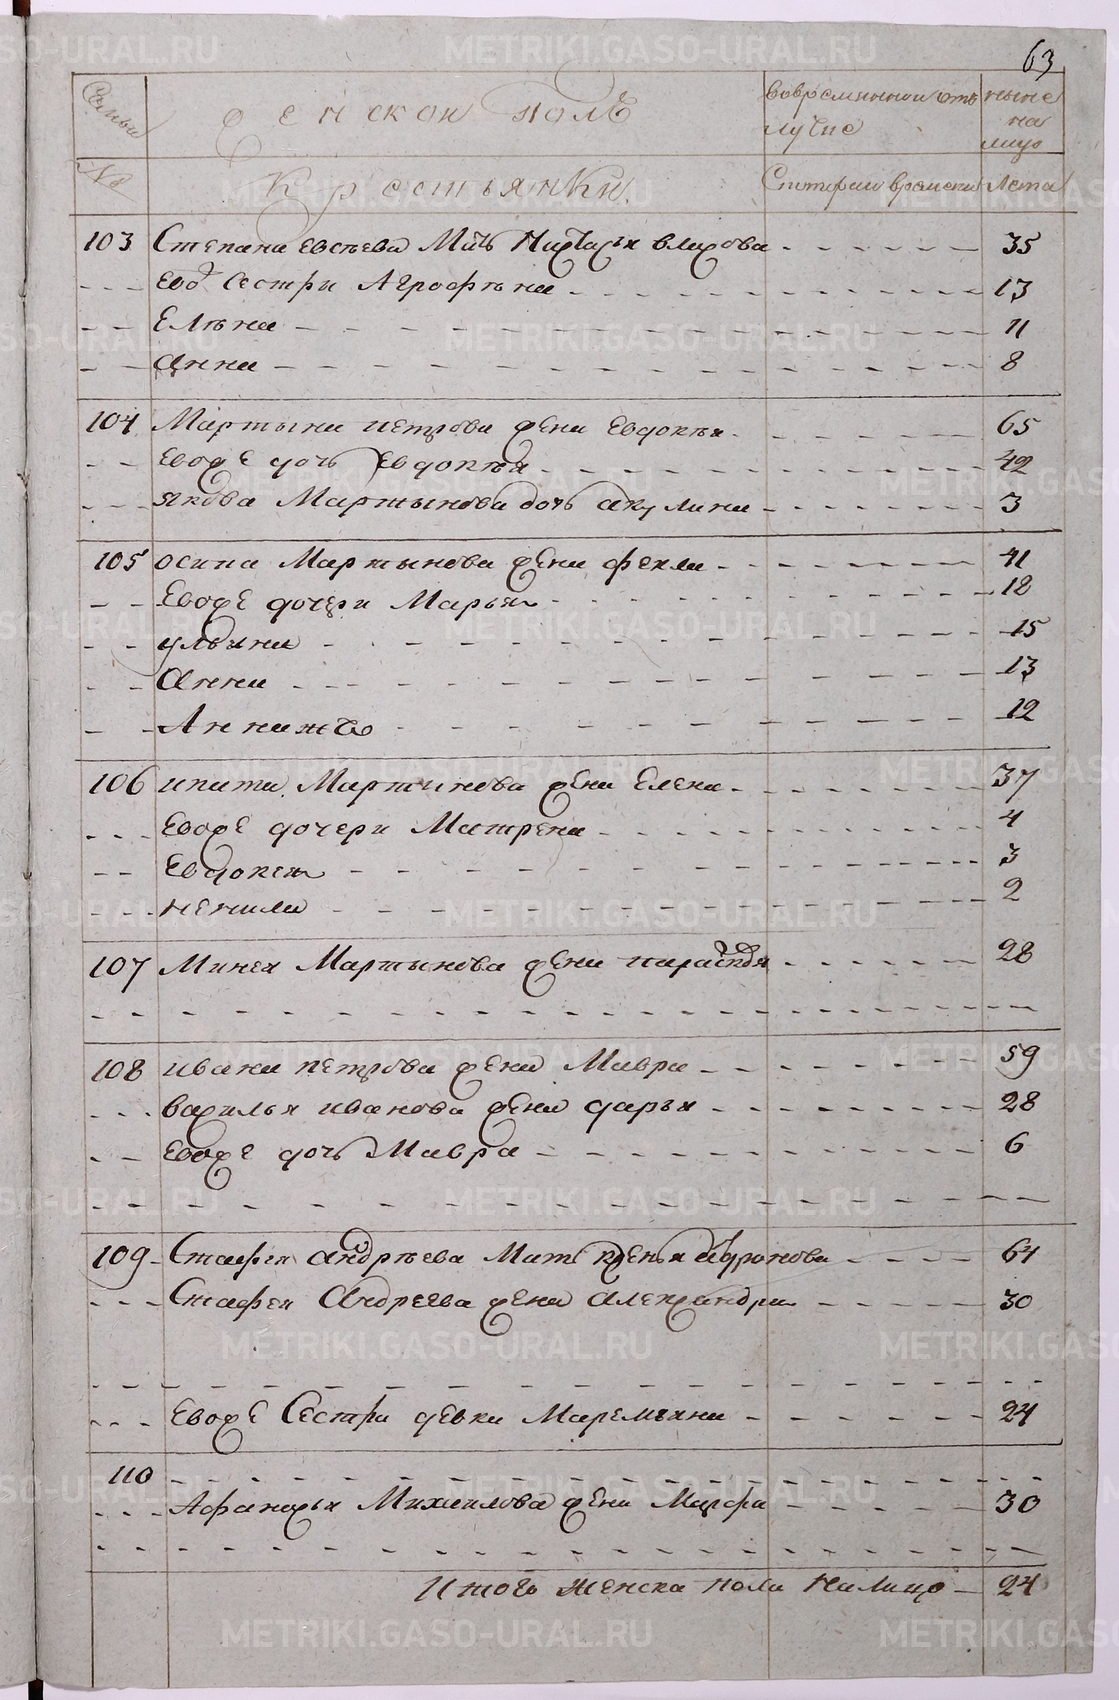 63
Семьи
Женскои полъ
во временнои отъ
лучке
ныне
на
лицо
№
Крестьянки.
С которого времени
Лета
103 Степана Евсѣева Мать Наталья влисова 35
Евож Сестри Агрофѣна 13
Елѣна 11
Анна 8
104 Мартына петрова жена Евдокѣя 65
Евоже дочь Евдокѣя 42
якова Мартынова дочь акулина 3
105 осипа Мартынова жена фекла 41
Евоже дочери Марья 18
ульяна 15
Анна 13
Аннижъ 12
106 ипата Мартинова жена Елена 37
Евоже дочери Матрена 4
Евдокея 3
ненила 2
107 Минея Мартынова жена парасковья 28
108 ивана петрова жена Мавра 59
василья иванова жена дарья 28
Евоже дочь Мавра 6
109 Стафея андрѣева Мать 64
Стафея Андреева жена александра 30
Евоже Сестра девка Маремьяна 24
110
Афанасья Михаилова жена Марфа 30
Итого женска пола налицо 24
METRIKI.GASO-URAL.RU